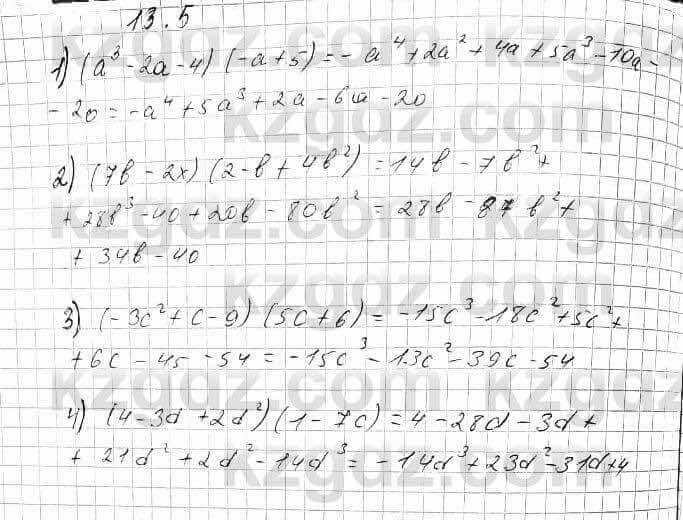 13.5
1) (a³ - 2a - 4) (-a + 5) = - a⁴ + 2a² + 4a + 5a³ - 10a -
- 20 = -a⁴ + 5a³ + 2a - 6a - 20
2) (7b - 2x) (2 - b + 4b²) = 14b - 7b² +
+ 28b³ - 40 + 20b - 80b² = 28b - 87b² +
+ 34b - 40
3) (-3c² + c - 9) (5c + 6) = -15c³ - 18c² + 5c² +
+ 6c - 45 - 54 = -15c³ - 13c² - 39c - 54
4) (4 - 3d + 2d²) (1 - 7c) = 4 - 28d - 3d +
+ 21d² + 2d² - 14d³ = -14d³ + 23d² - 31d + 4
kzgdz.com